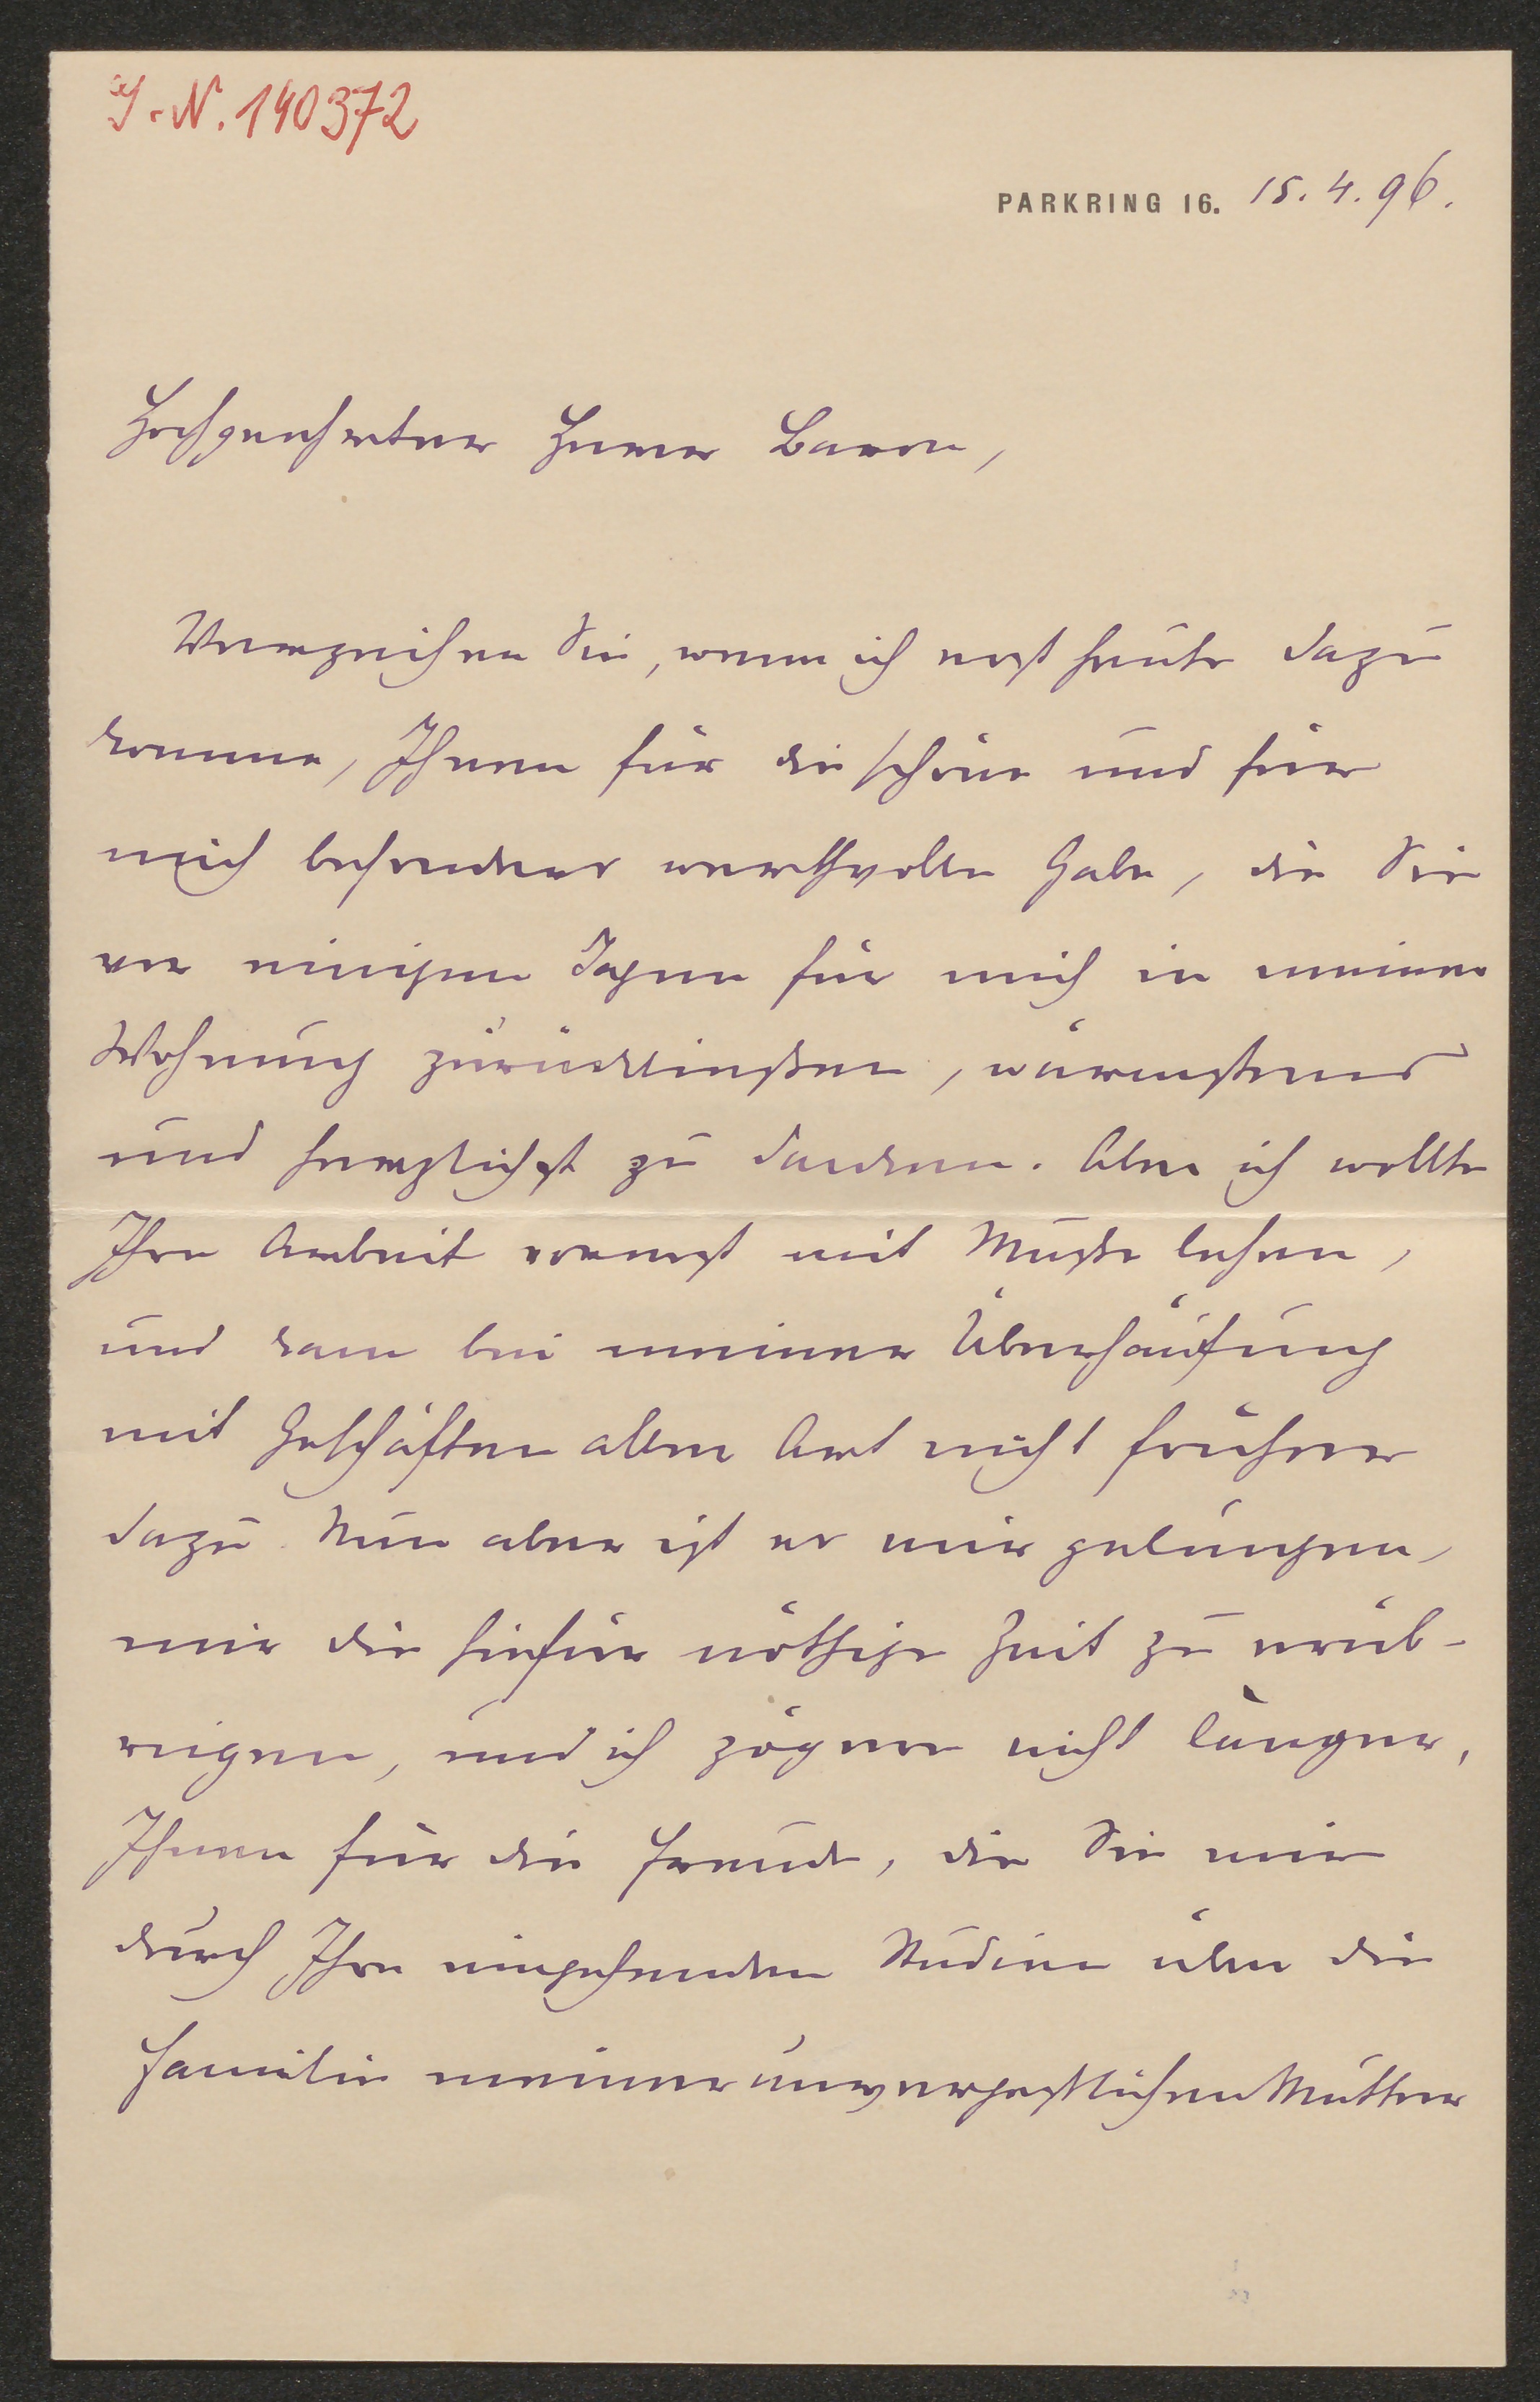 I.-N. 140372
PARKRING 16. 15.4.96.
Hochgeehrter Herr Baron,
Verzeihen Sie, wenn ich erst heute dazu
komme, Ihnen für die schöne und für
mich besonders werthvolle Gabe, die Sie
vor einigen Tagen für mich in meiner
Wohnung zurückließen, wärmstens
und herzlichst zu danken. Aber ich wollte
Ihre Arbeit vorerst mit Muße lesen,
und kam bei meiner Überhäufung
mit Geschäften aller Art nicht früher
dazu. Nun aber ist es mir gelungen,
mir die hiefür nöthige Zeit zu erüb-
rigen, und ich zögere nicht länger,
Ihnen für die Freude, die Sie mir
durch Ihre eingehenden Studien über die
Familie meiner unvergeßlichen Mutter